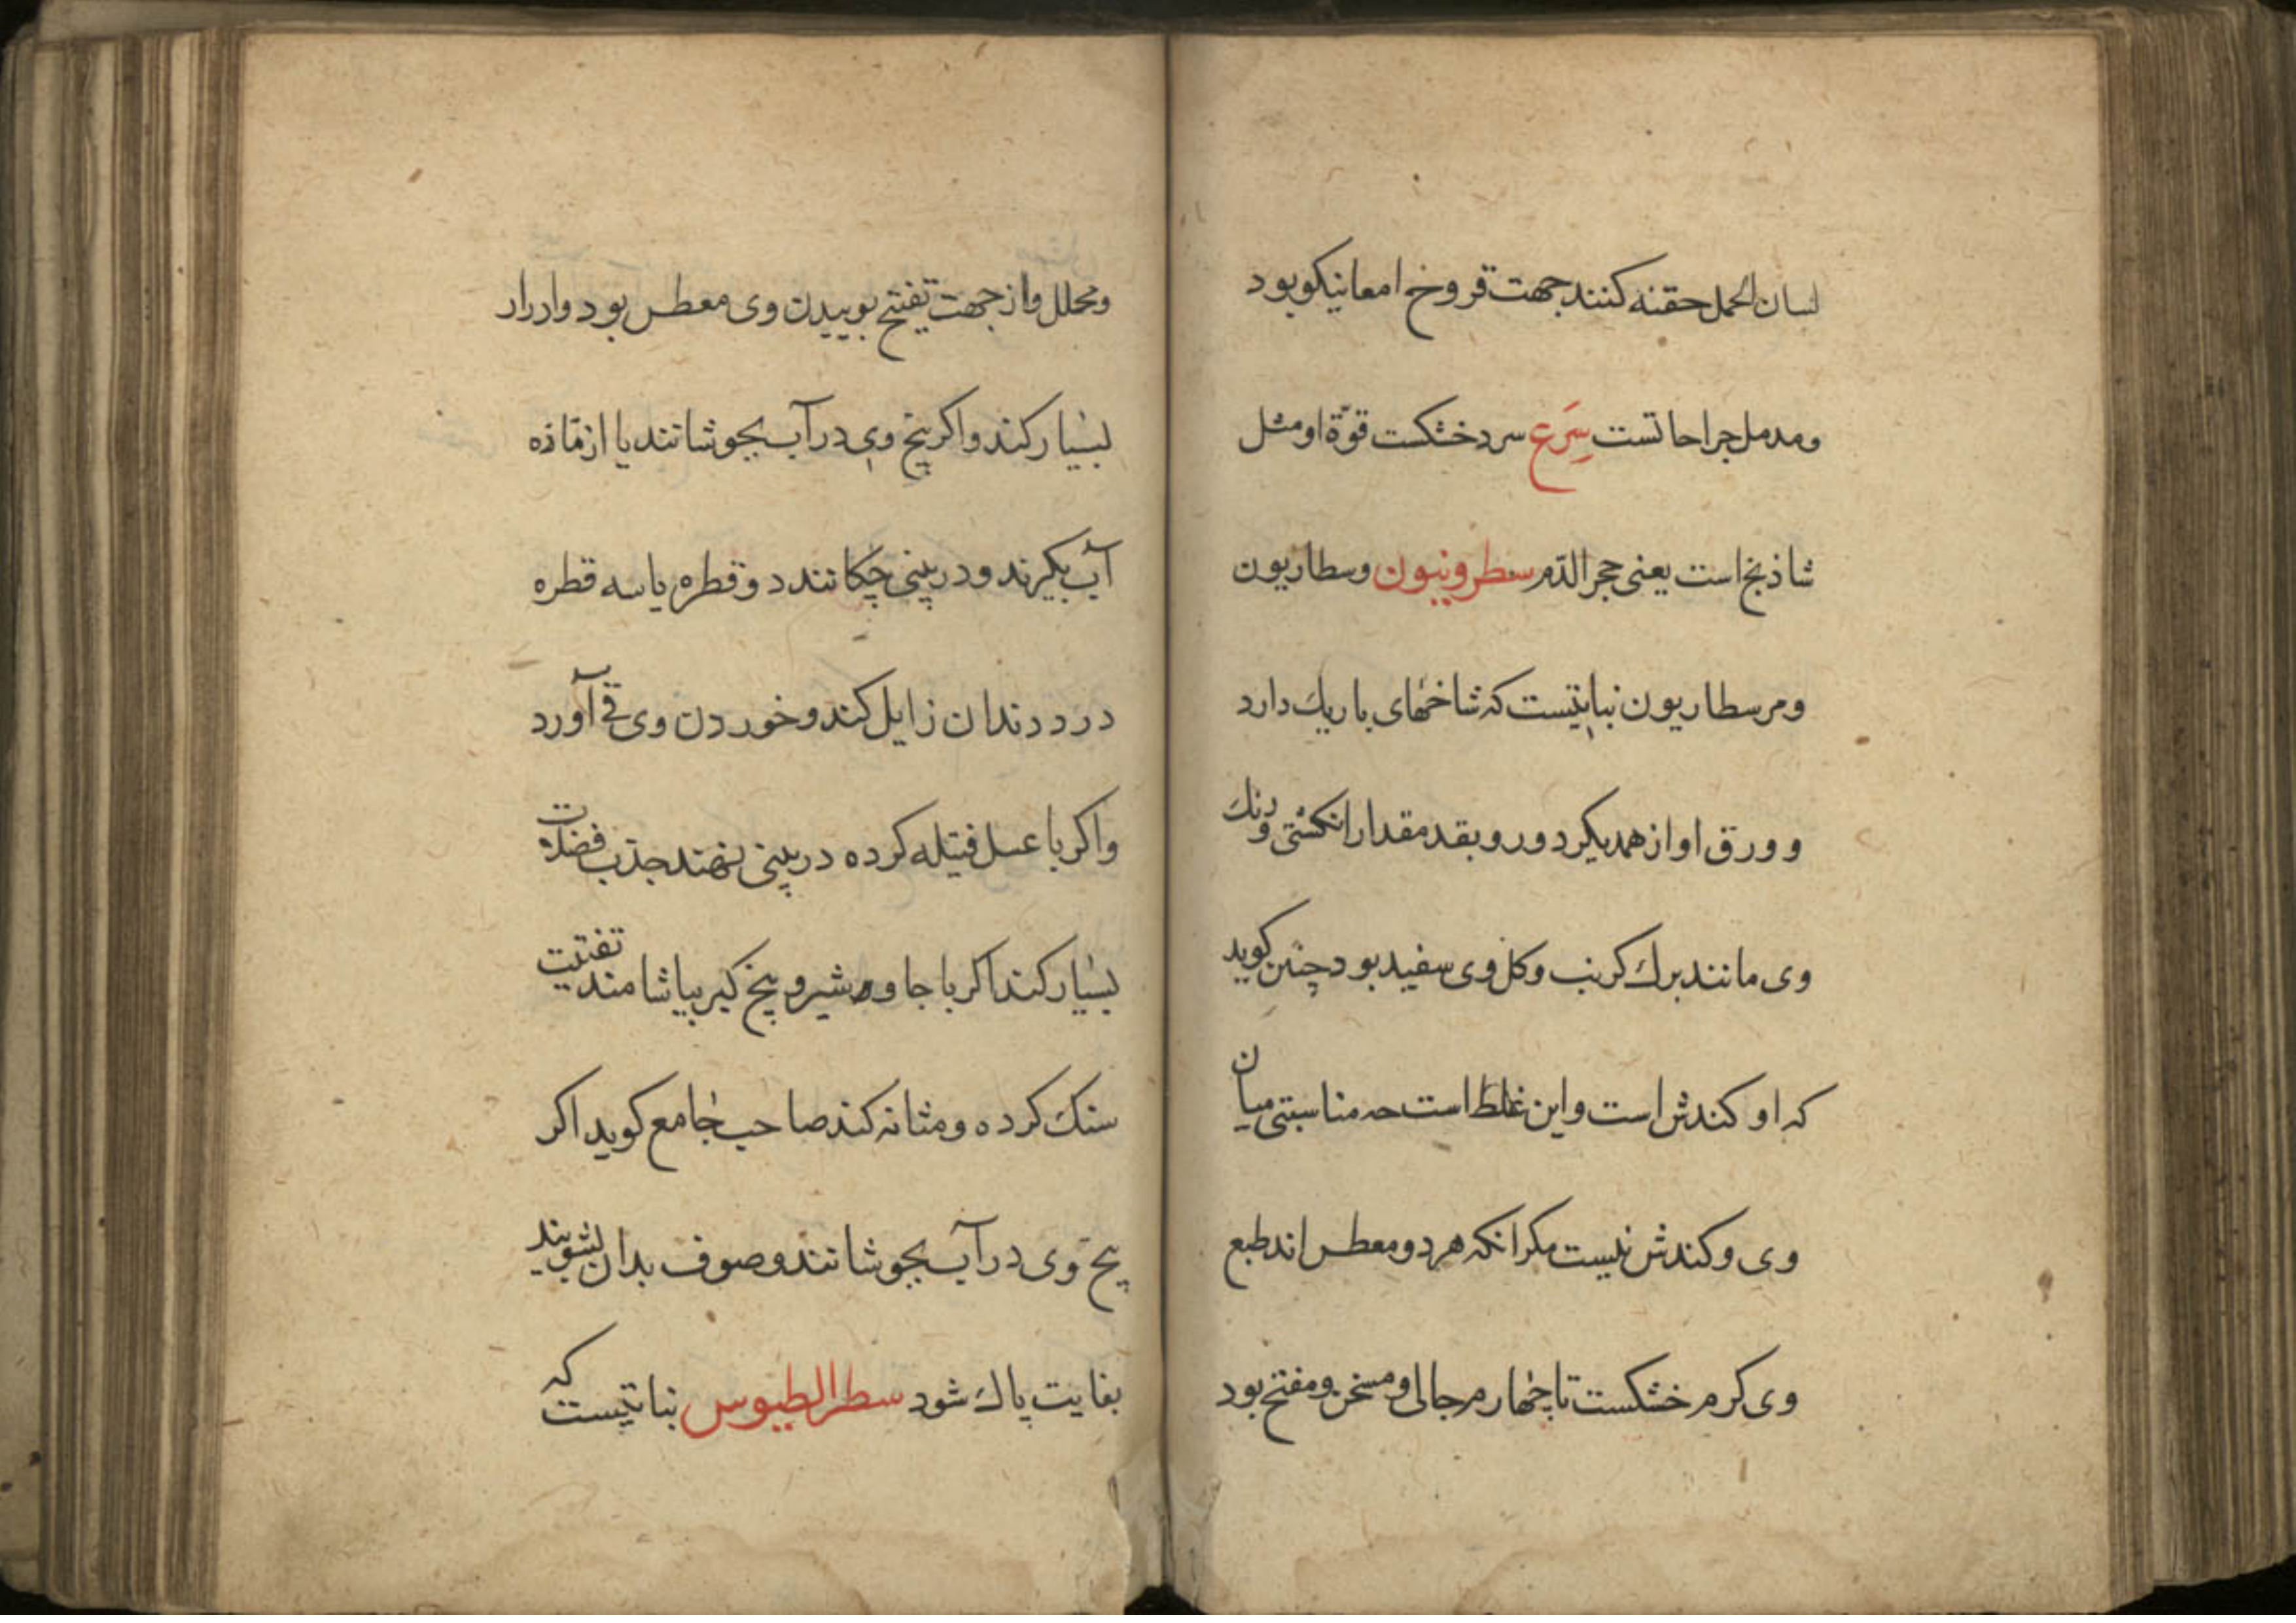 لسان الحمل حقنه کنند جهت قروخ امعا نیکو بود
ومدمل جراحاتست سرع سرد خشکست قوّة او مثل
شاذنج است یعنی حجر الدّم سطرونیون وسطاریون
ومرسطاریون نباتیست که شاخهای باریك دارد
وورق او از همدیکر دور و بقد مقدار انکشتی ورنك
وی مانند برك کرنب وکل وی سفید بود چنین کوید
که او کندش است واین غلط است حه مناسبتی میان
وی وکندش نیست مکر انکه هر دو معطس اند طبع
وی کرم خشکست تا چهارم جالی ومسخن ومفتح بود
ومحلل واز جهت تفتح بوییدن وی معطس بود وادرار
بسیار کند واکر بیخ وی در آب بجوشانند یا از تازه
آب بکیرند ودر بینی چکانند دو قطره یا سه قطره
درد دندان زایل کند وخوردن وی قی آورد
واکر با عسل فتیله کرده در بینی نهند جذب فضلات
بسیار کند اکر با جاوشیر و بیخ کبر بیاشامند تفتیت
سنك کرده ومثانه کند صاحب جامع کوید اکر
بیخ وی در آب بجوشانند وصوف بدان بشویند
بغایت پاك شود سطرالطیوس نباتیست که